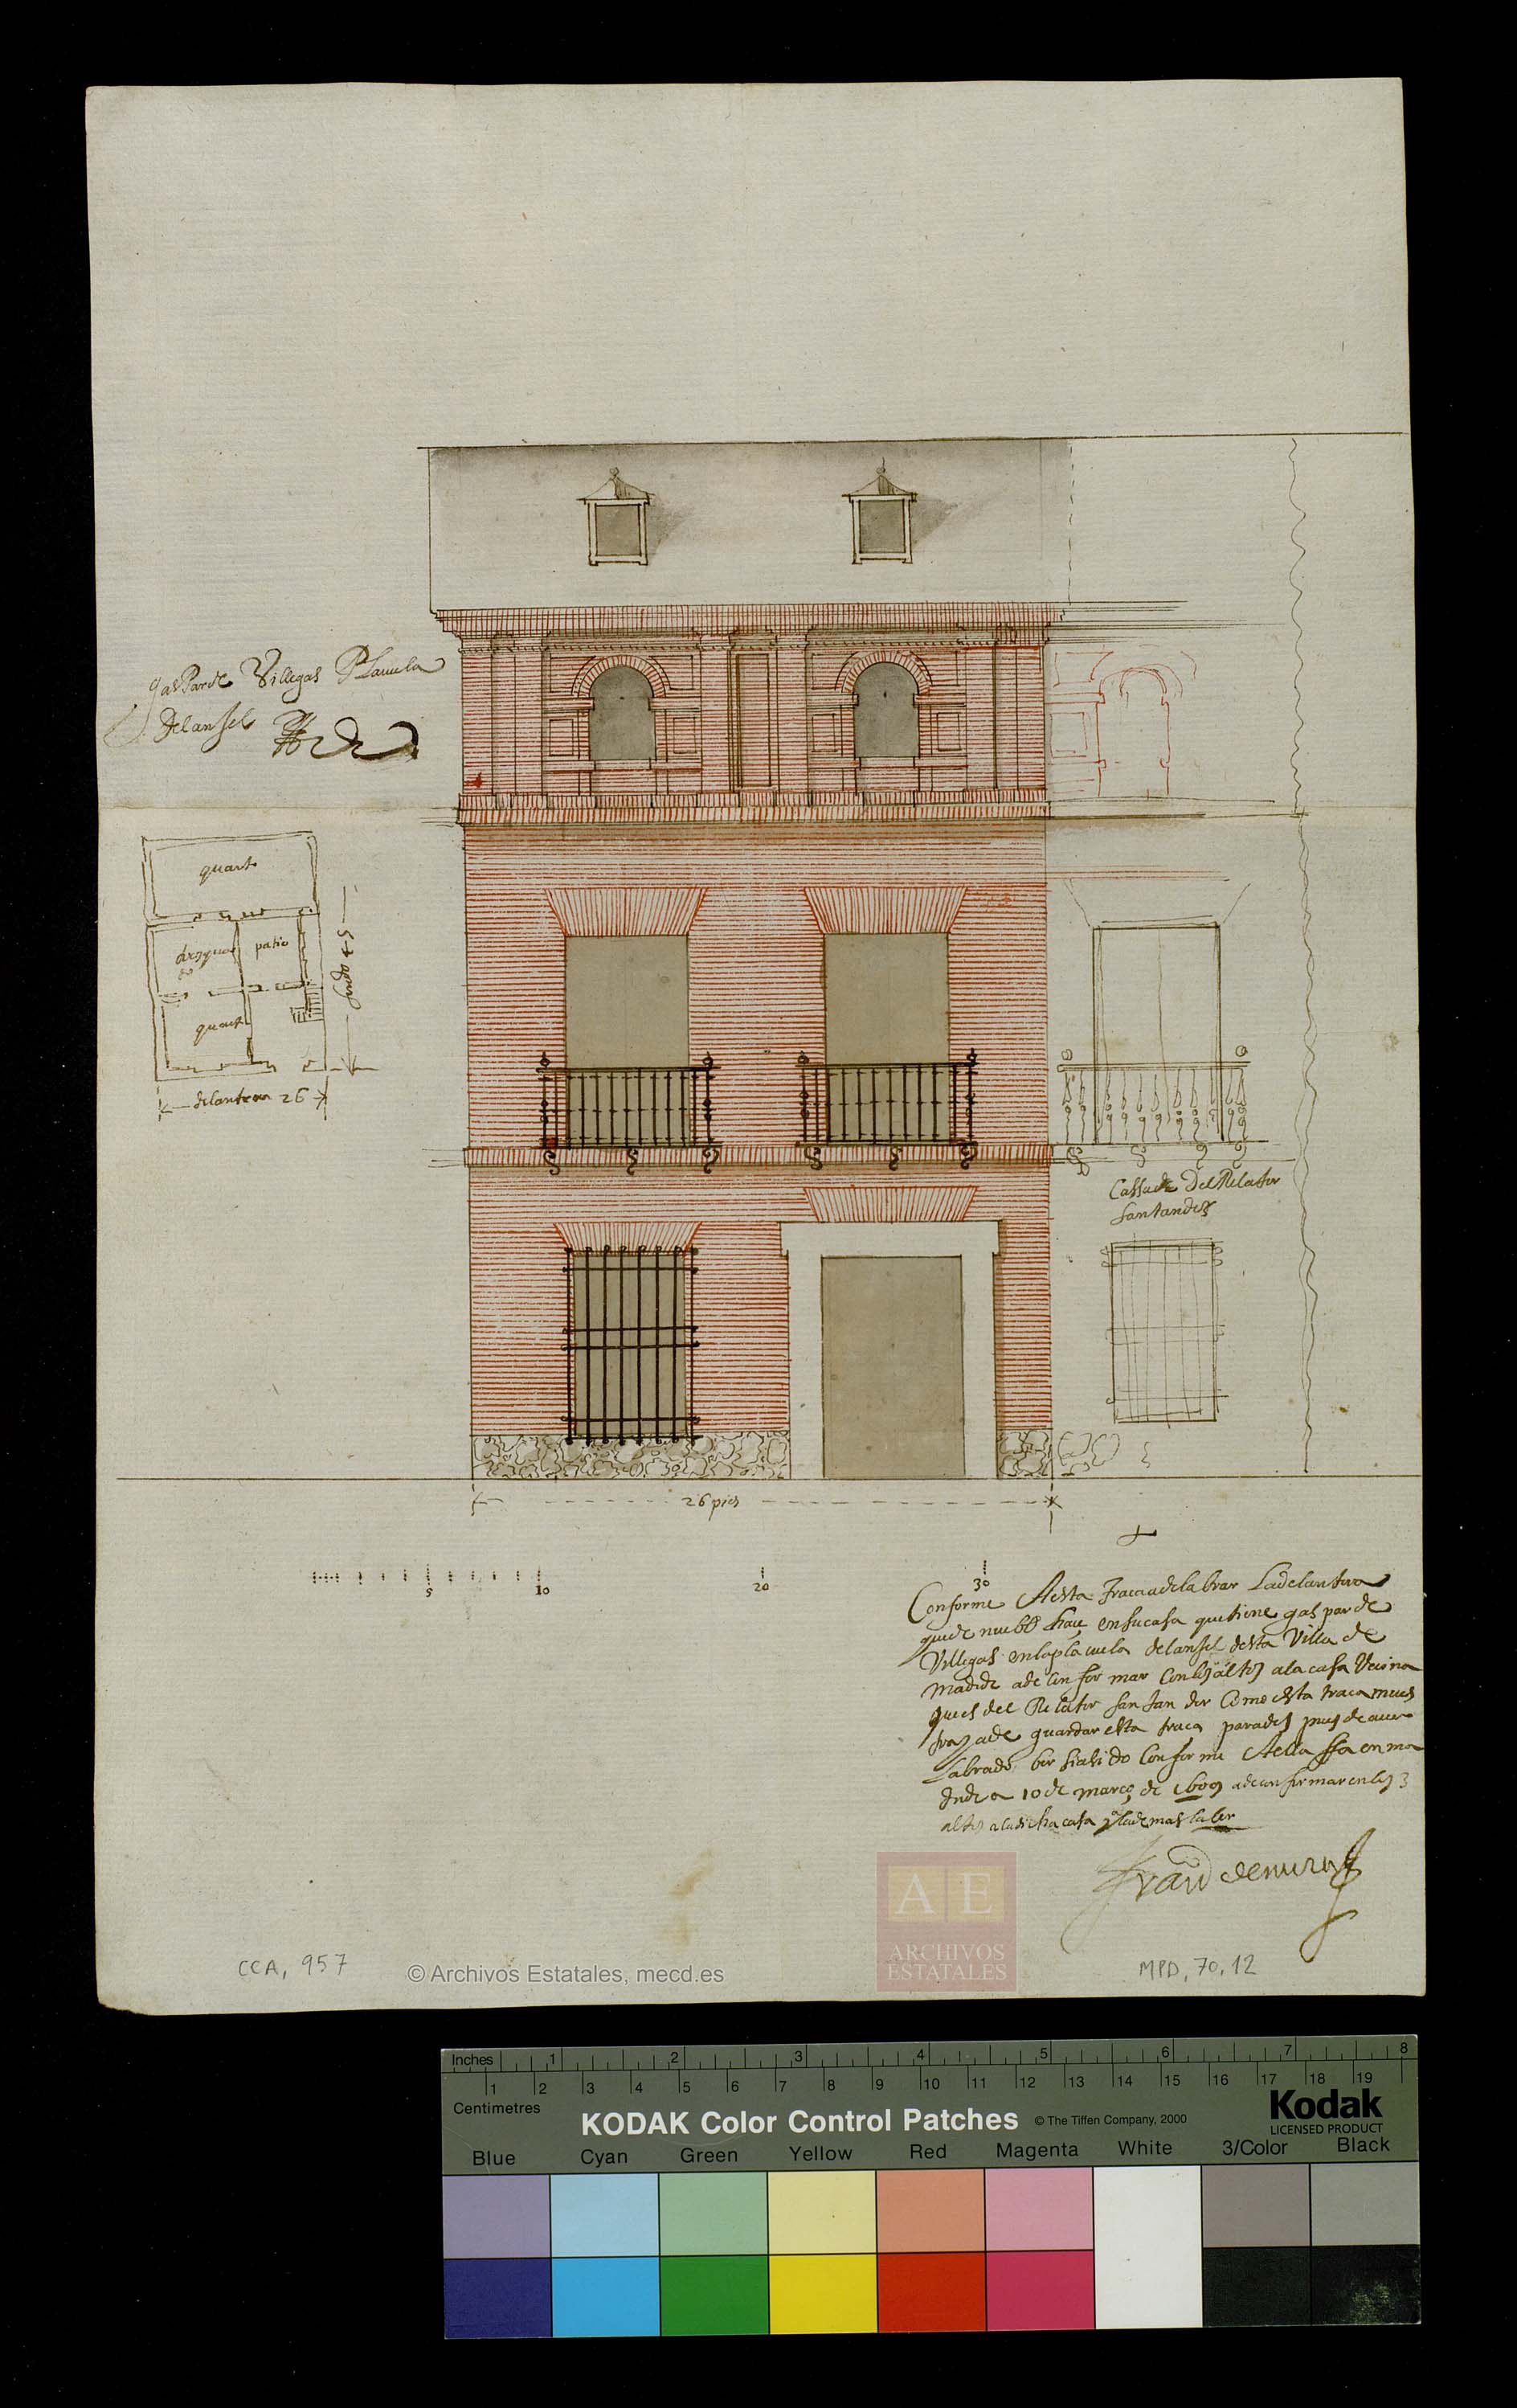 gasparde Villegas Placuela
delansel
quarto
desguar
do
patio
quarto
fondo 45
delantera 26
Cassa de Del Relator
Santander
26 pies
5 10 20 30
Conforme Aesta Traca adelabrar Ladelantera
quede nuebo haçe ensucasa quetiene gasparde
Villegas enlaplaçuela delansel desta Villa de
Madrid adeconformar conlos altos alacasa Vecina
ques del Relator Santander Como esta traca mues
tra y ade guardar esta traca para despues deauer
Labrado ber siasido Conforme Aella ffa enma
drid a 10 de março de 1609 adeconformar enlos 3
altos aladicha casa
Franco demora
CCA, 957
© Archivos Estatales, mecd.es
AE
ARCHIVOS
ESTATALES
MPD, 70, 12
Inches 1 2 3 4 5 6 7 8
1 2 3 4 5 6 7 8 9 10 11 12 13 14 15 16 17 18 19
Centimetres
KODAK Color Control Patches © The Tiffen Company, 2000
Kodak
LICENSED PRODUCT
Blue Cyan Green Yellow Red Magenta White 3/Color Black